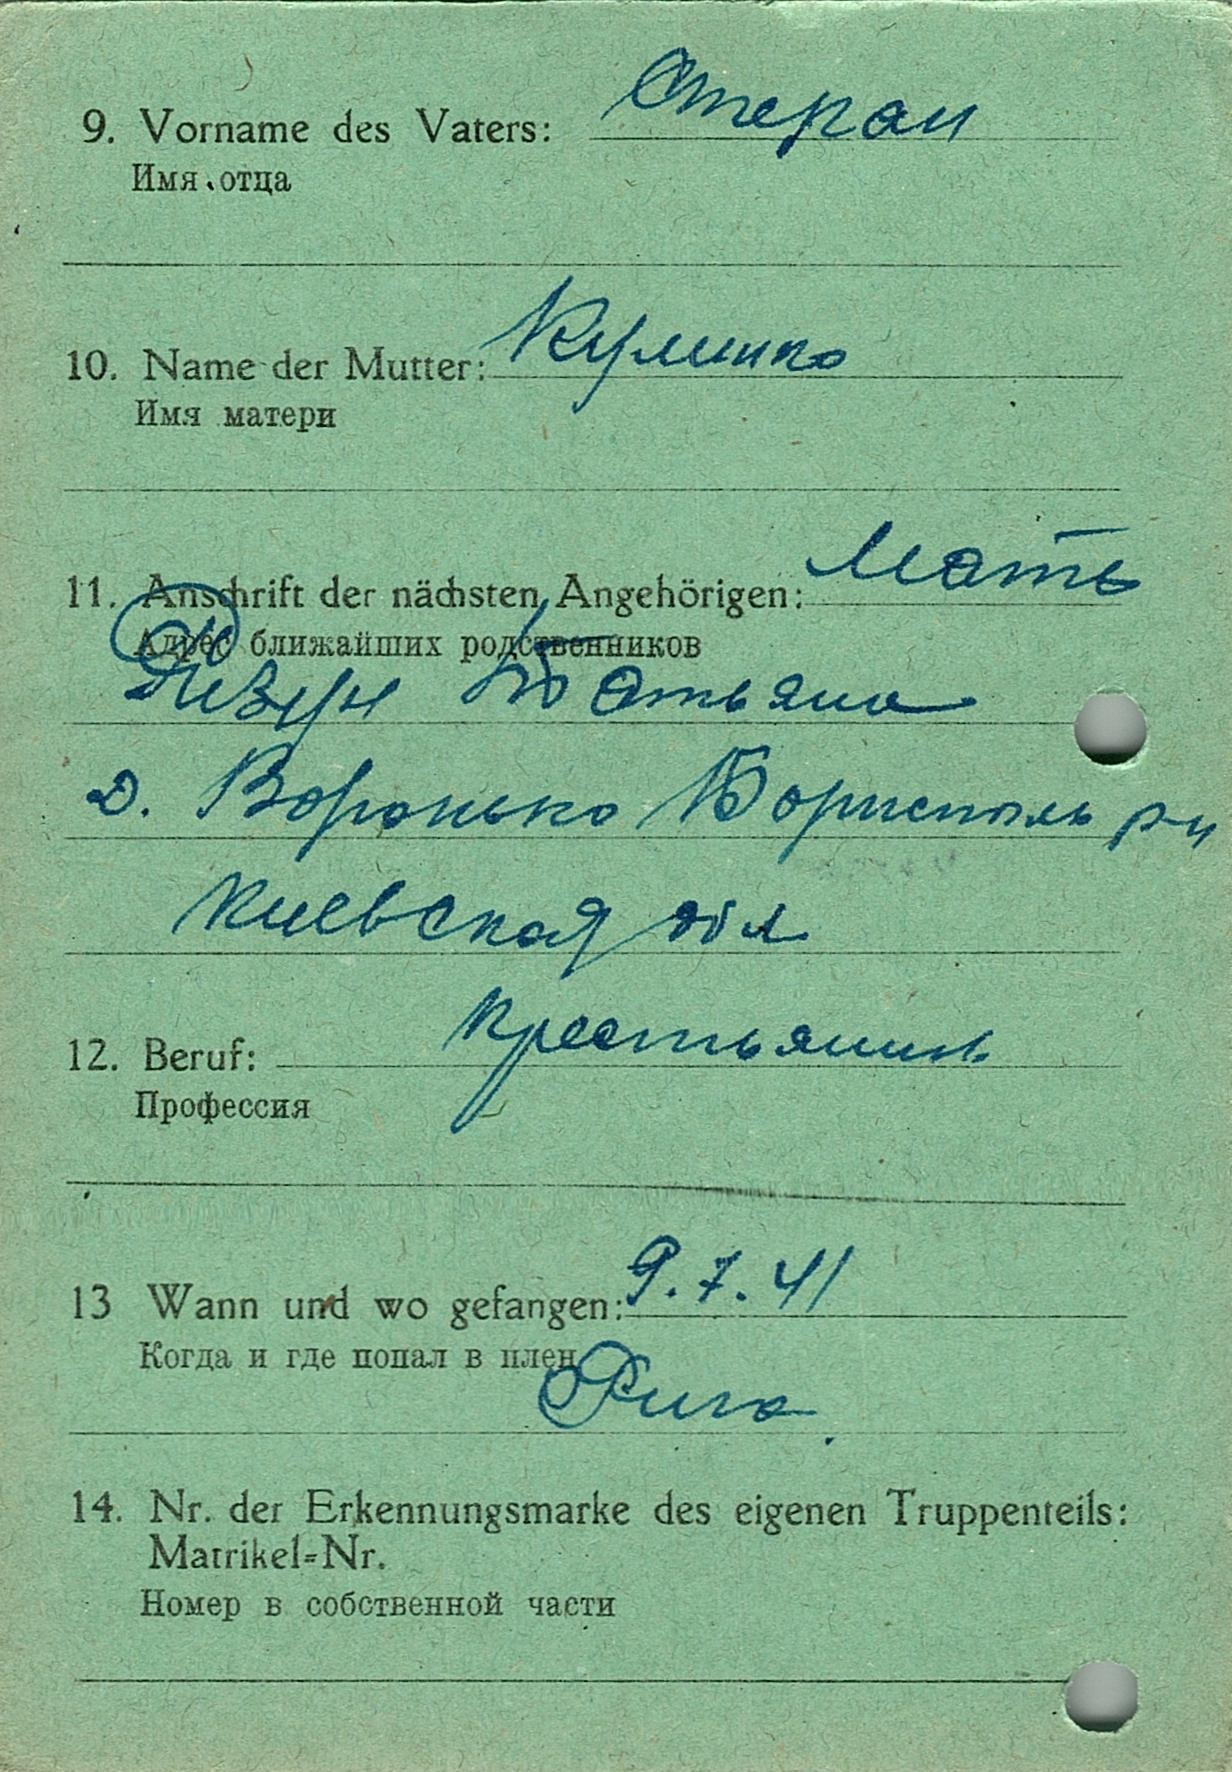 9. Vorname des Vaters: Степан
Имя отца
10. Name der Mutter: Кулишко
Имя матери
11. Anschrift der nächsten Angehörigen: Мать
Адрес ближайших родственников
Татьяна
д. Воронько Борисполь р-н
Киевская обл
12. Beruf: крестьянин
Профессия
13 Wann und wo gefangen: 9.7.41
Когда и где попал в плен
Рига
14. Nr. der Erkennungsmarke des eigenen Truppenteils:
Matrikel=Nr.
Номер в собственной части